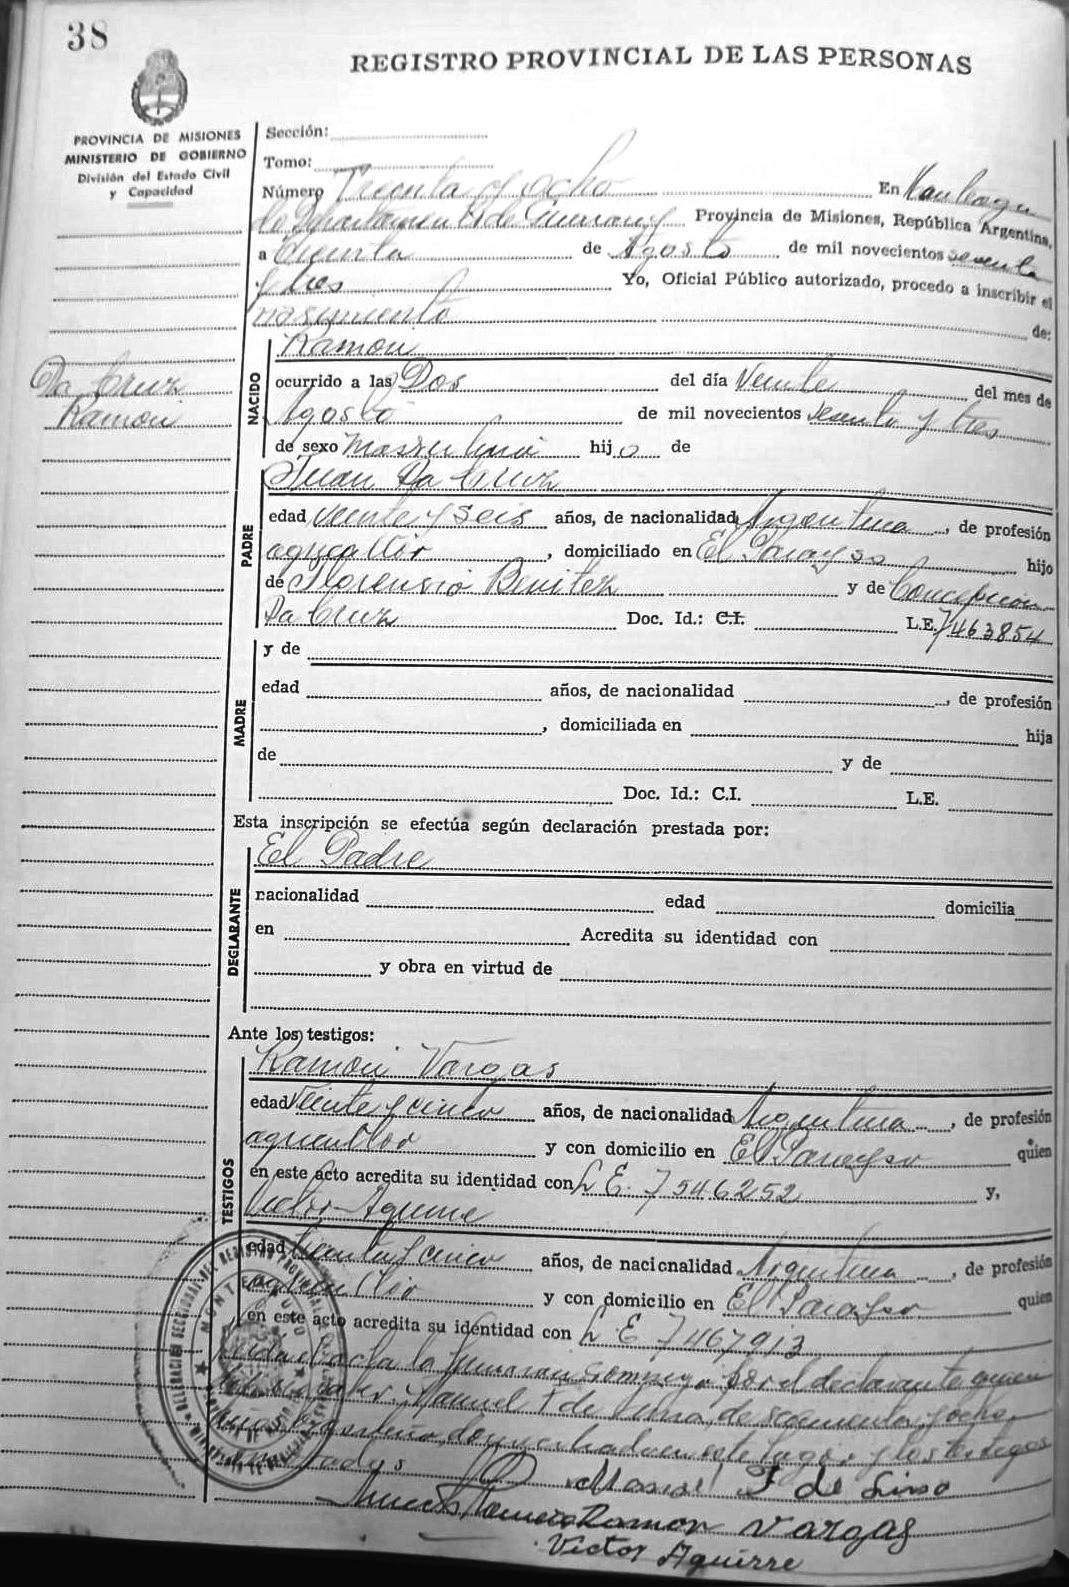 38
REGISTRO PROVINCIAL DE LAS PERSONAS
PROVINCIA DE MISIONES
MINISTERIO DE GOBIERNO
División del Estado Civil
y Capacidad
Sección:
Tomo:
Número Treinta y ocho En
Departamento de Provincia de Misiones, República Argentina,
a treinta de Agosto de mil novecientos sesenta
y tres Yo, Oficial Público autorizado, procedo a inscribir el
nasimiento de:
Da Cruz
Ramon
NACIDO
Ramon
ocurrido a las Dos del día Veinte del mes de
Agosto de mil novecientos sesenta y tres
de sexo Masculino hijo de
PADRE
Juan Da Cruz
edad veinte y seis años, de nacionalidad Argentina, de profesión
agricultor, domiciliado en El Parayso hijo
de Florensio Benitez y de Concepcion
Da Cruz Doc. Id.: C.I. L.E. 7463854
MADRE
y de
edad años, de nacionalidad, de profesión
, domiciliada en hija
de y de
Doc. Id.: C.I. L.E.
Esta inscripción se efectúa según declaración prestada por:
DECLARANTE
El Padre
nacionalidad edad domicilia
en Acredita su identidad con
y obra en virtud de
Ante los testigos:
TESTIGOS
Ramon Vargas
edad Veinte y cinco años, de nacionalidad Argentina, de profesión
agricultor y con domicilio en El Parayso quien
en este acto acredita su identidad con L E. 7546252 y,
Victor Aguirre
edad treinta y cinco años, de nacionalidad Argentina, de profesión
agricultor y con domicilio en El Parayso quien
en este acto acredita su identidad con L E 7467913
Leida el acta la firma por el declarante quien
Manuel F de Lima, de sesenta y ocho
en este lugar y los testigos
Manuel F de Lima
Ramon Vargas
Victor Aguirre